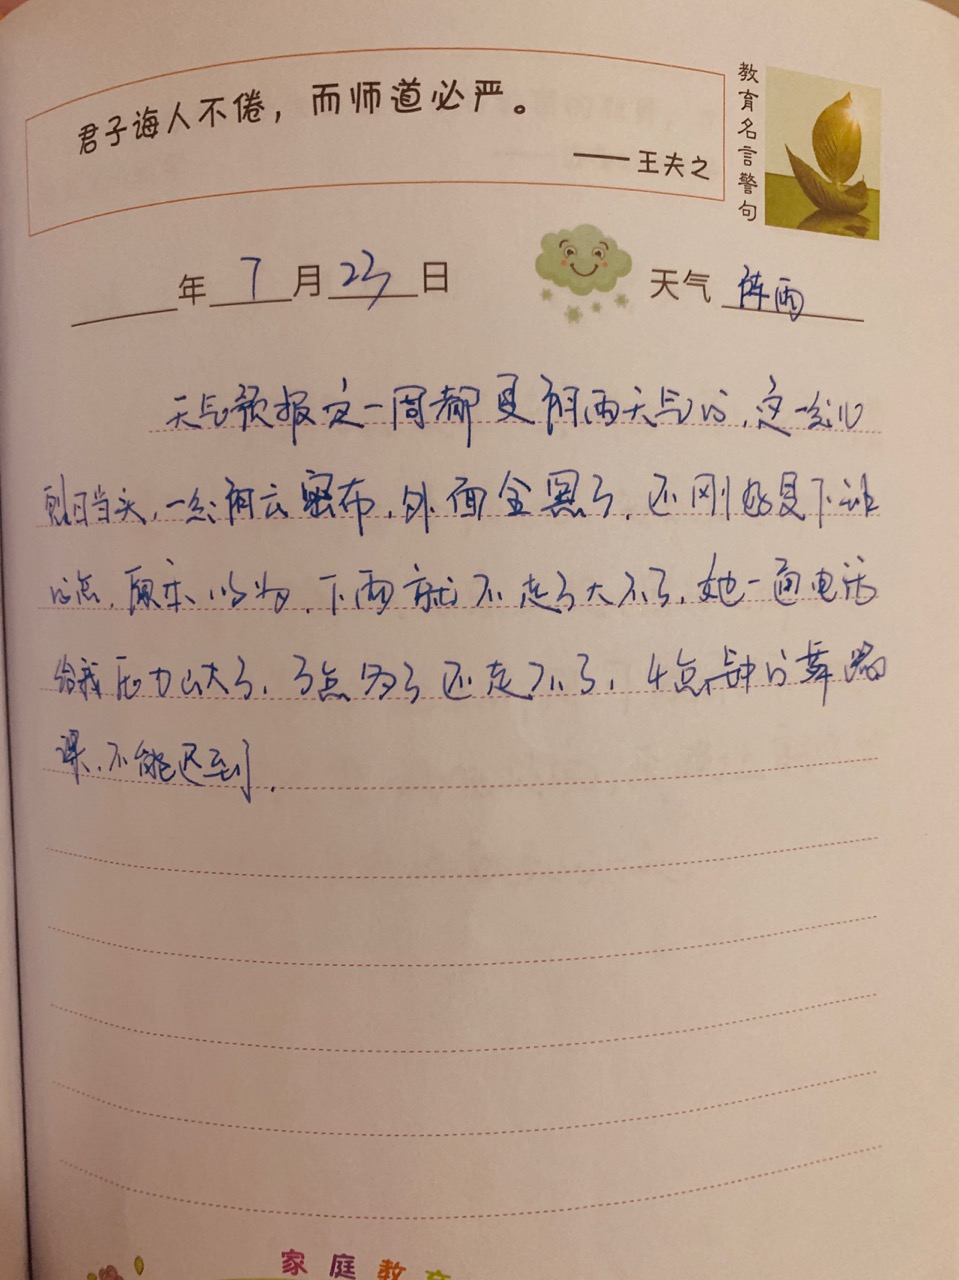 君子诲人不倦，而师道必严。
——王夫之
教育名言警句
年 7 月 23 日 天气 阵雨
天气预报这一周都是阴雨天气的，这一会儿
烈日当头，一会阴云密布，外面全黑了，还刚好是下班
的点，原本以为，下雨就不走了大不了，她一通电话
给我压力山大了，3点多了还走不了，4点钟的舞蹈
课，不能迟到。
家庭教育